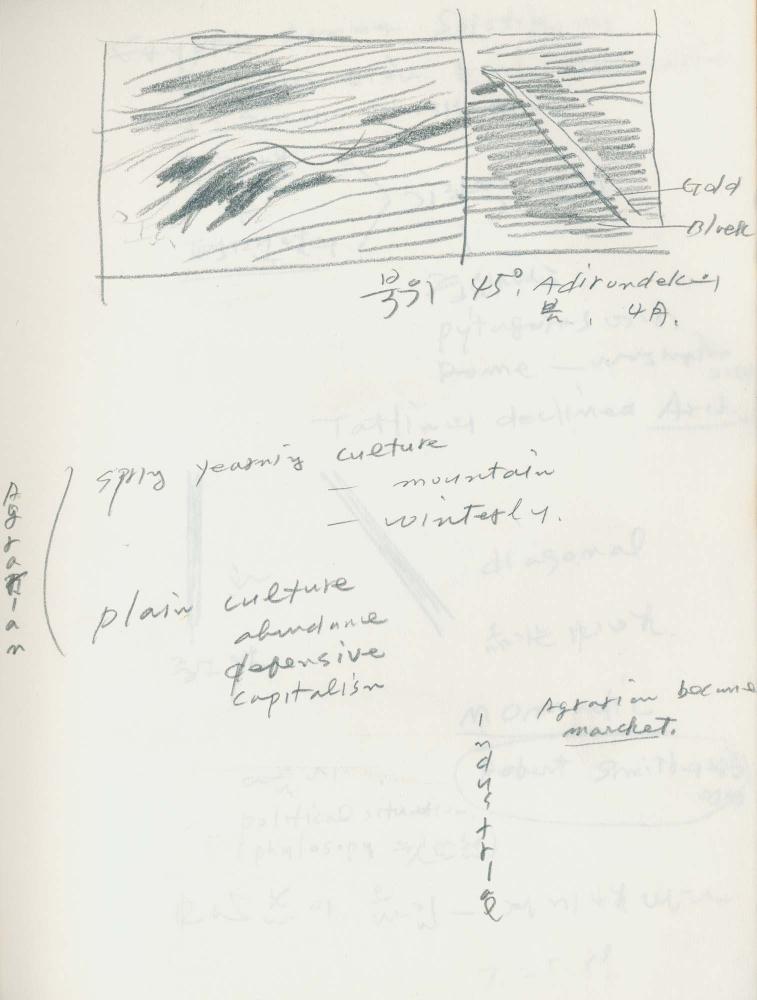 Gold
Black
북위 45°. Adirondek,
봄, 4月.
Agrarian
Spring yearning culture
— mountain
— winterly.
plain culture
abundance
defensive
capitalism
Agrarian become
market.
industrial